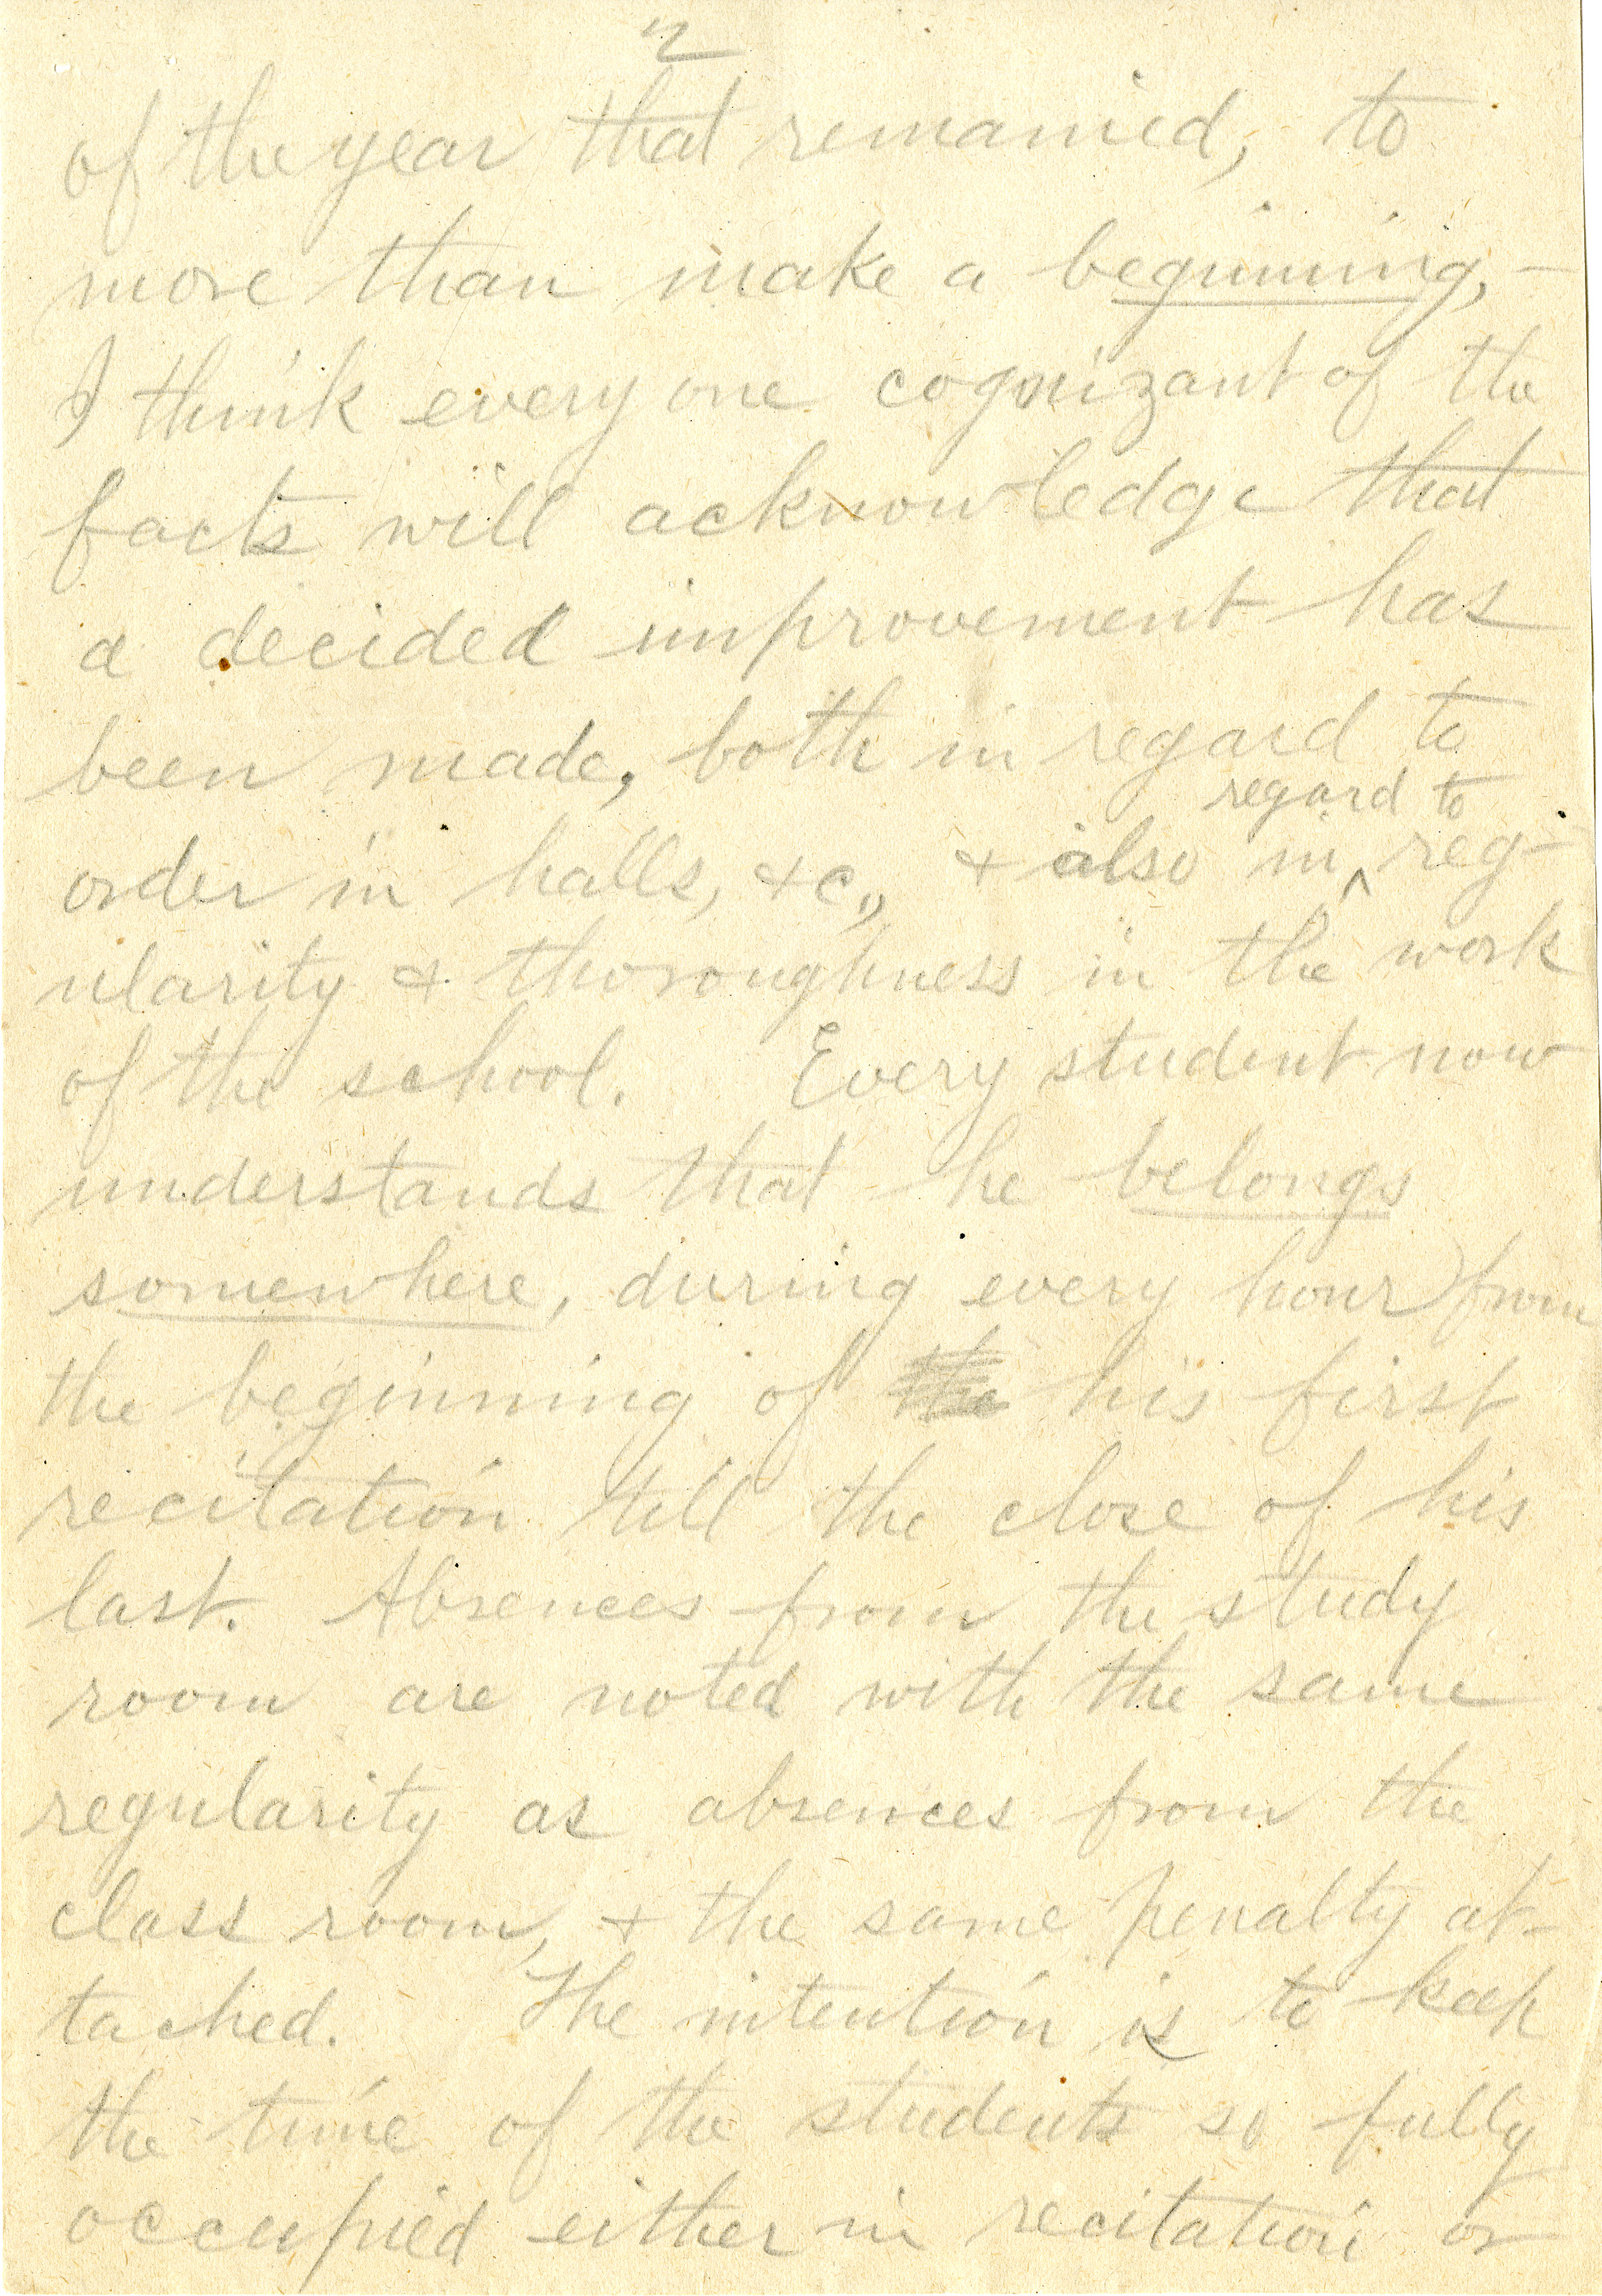 2
of the year that remained, to
more than make a beginning, —
I think every one cognizant of the
facts will acknowledge that
a decided improvement has
been made, both in regard to
regard to
order in halls, &c., & also in ^ reg-
ularity & thoroughness in the work
of the school. Every student now
understands that he belongs
somewhere, during every hour from
the beginning of the his first
recitation till the close of his
last. Absences from the study
room are noted with the same
regularity as absences from the
class room, & the same penalty at-
tached. The intention is to keep
the time of the students so fully
occupied either in recitation or